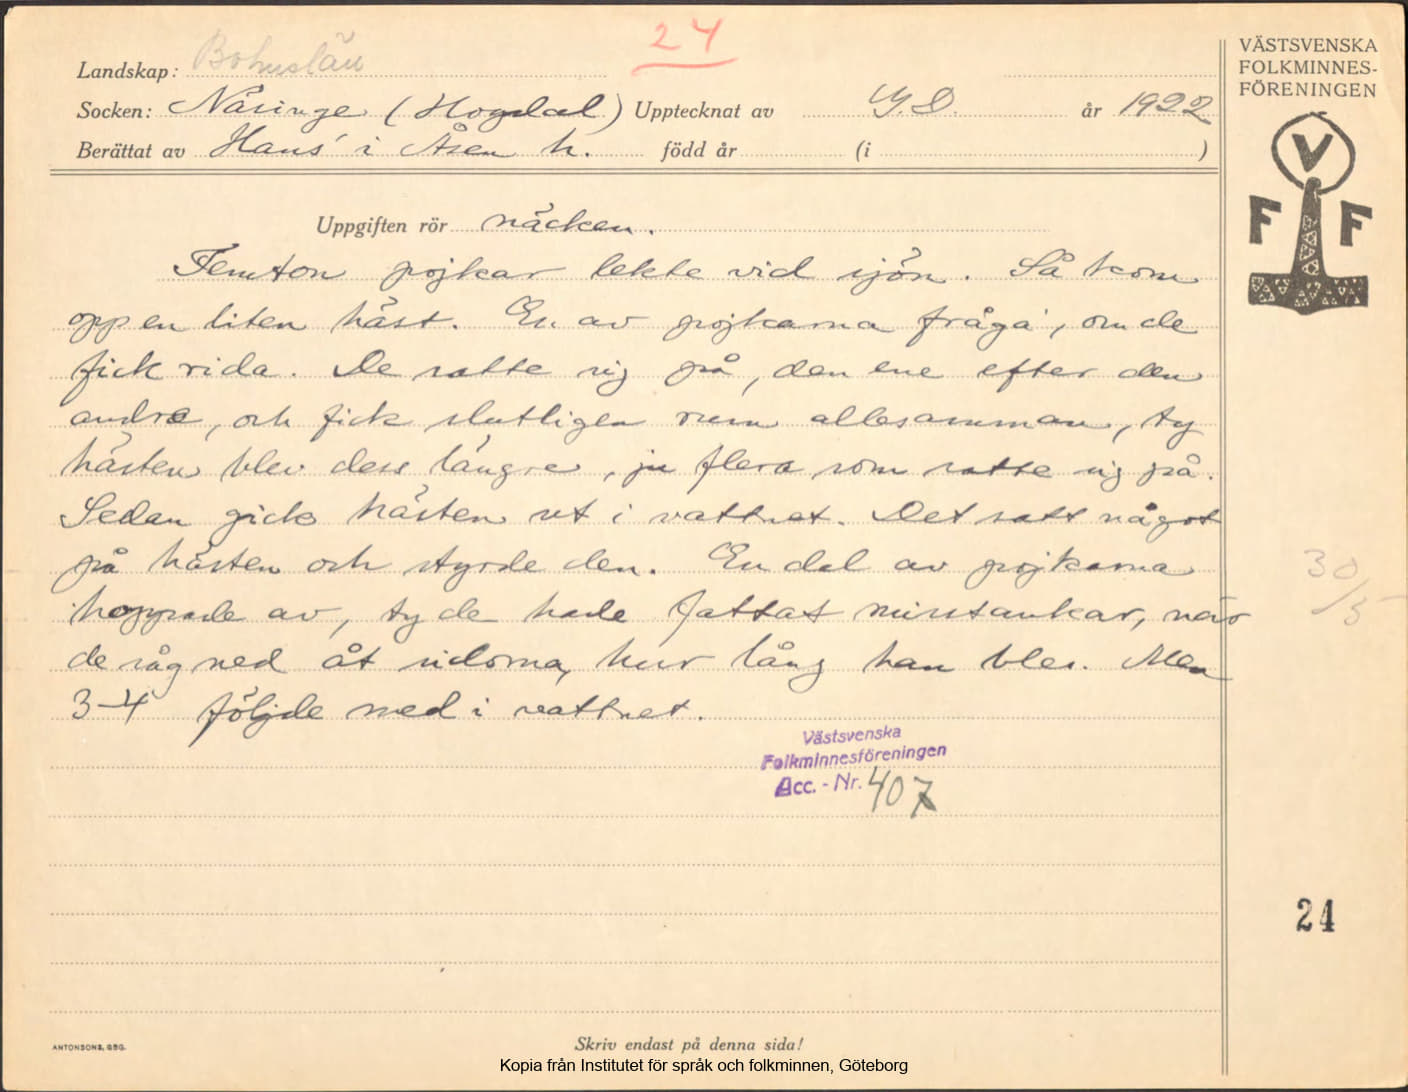 24
VÄSTSVENSKA
FOLKMINNES-
FÖRENINGEN
Landskap: Bohuslän
Socken: Näsinge (Hogdal) Upptecknat av Y. D. år 1922
Berättat av Hans' i Åsen h. född år (i )
V
F F
Uppgiften rör näcken.
Femton pojkar lekte vid sjön. Så kom
opp en liten häst. En av pojkarna fråga', om de
fick rida. De satte sig på, den ene efter den
andra, och fick slutligen rum allesamman, ty
hästen blev dess längre, ju flera som satte sig på.
Sedan gick hästen ut i vattnet. Det satt något
på hästen och styrde den. En del av pojkarna
hoppade av, ty de hade fattat misstankar, när
de såg ned åt sidorna, hur lång han blev. Men
3-4 följde med i vattnet.
30/5
Västsvenska
Folkminnesföreningen
Acc. - Nr. 407
24
ANTONSONS, GBG.
Skriv endast på denna sida!
Kopia från Institutet för språk och folkminnen, Göteborg